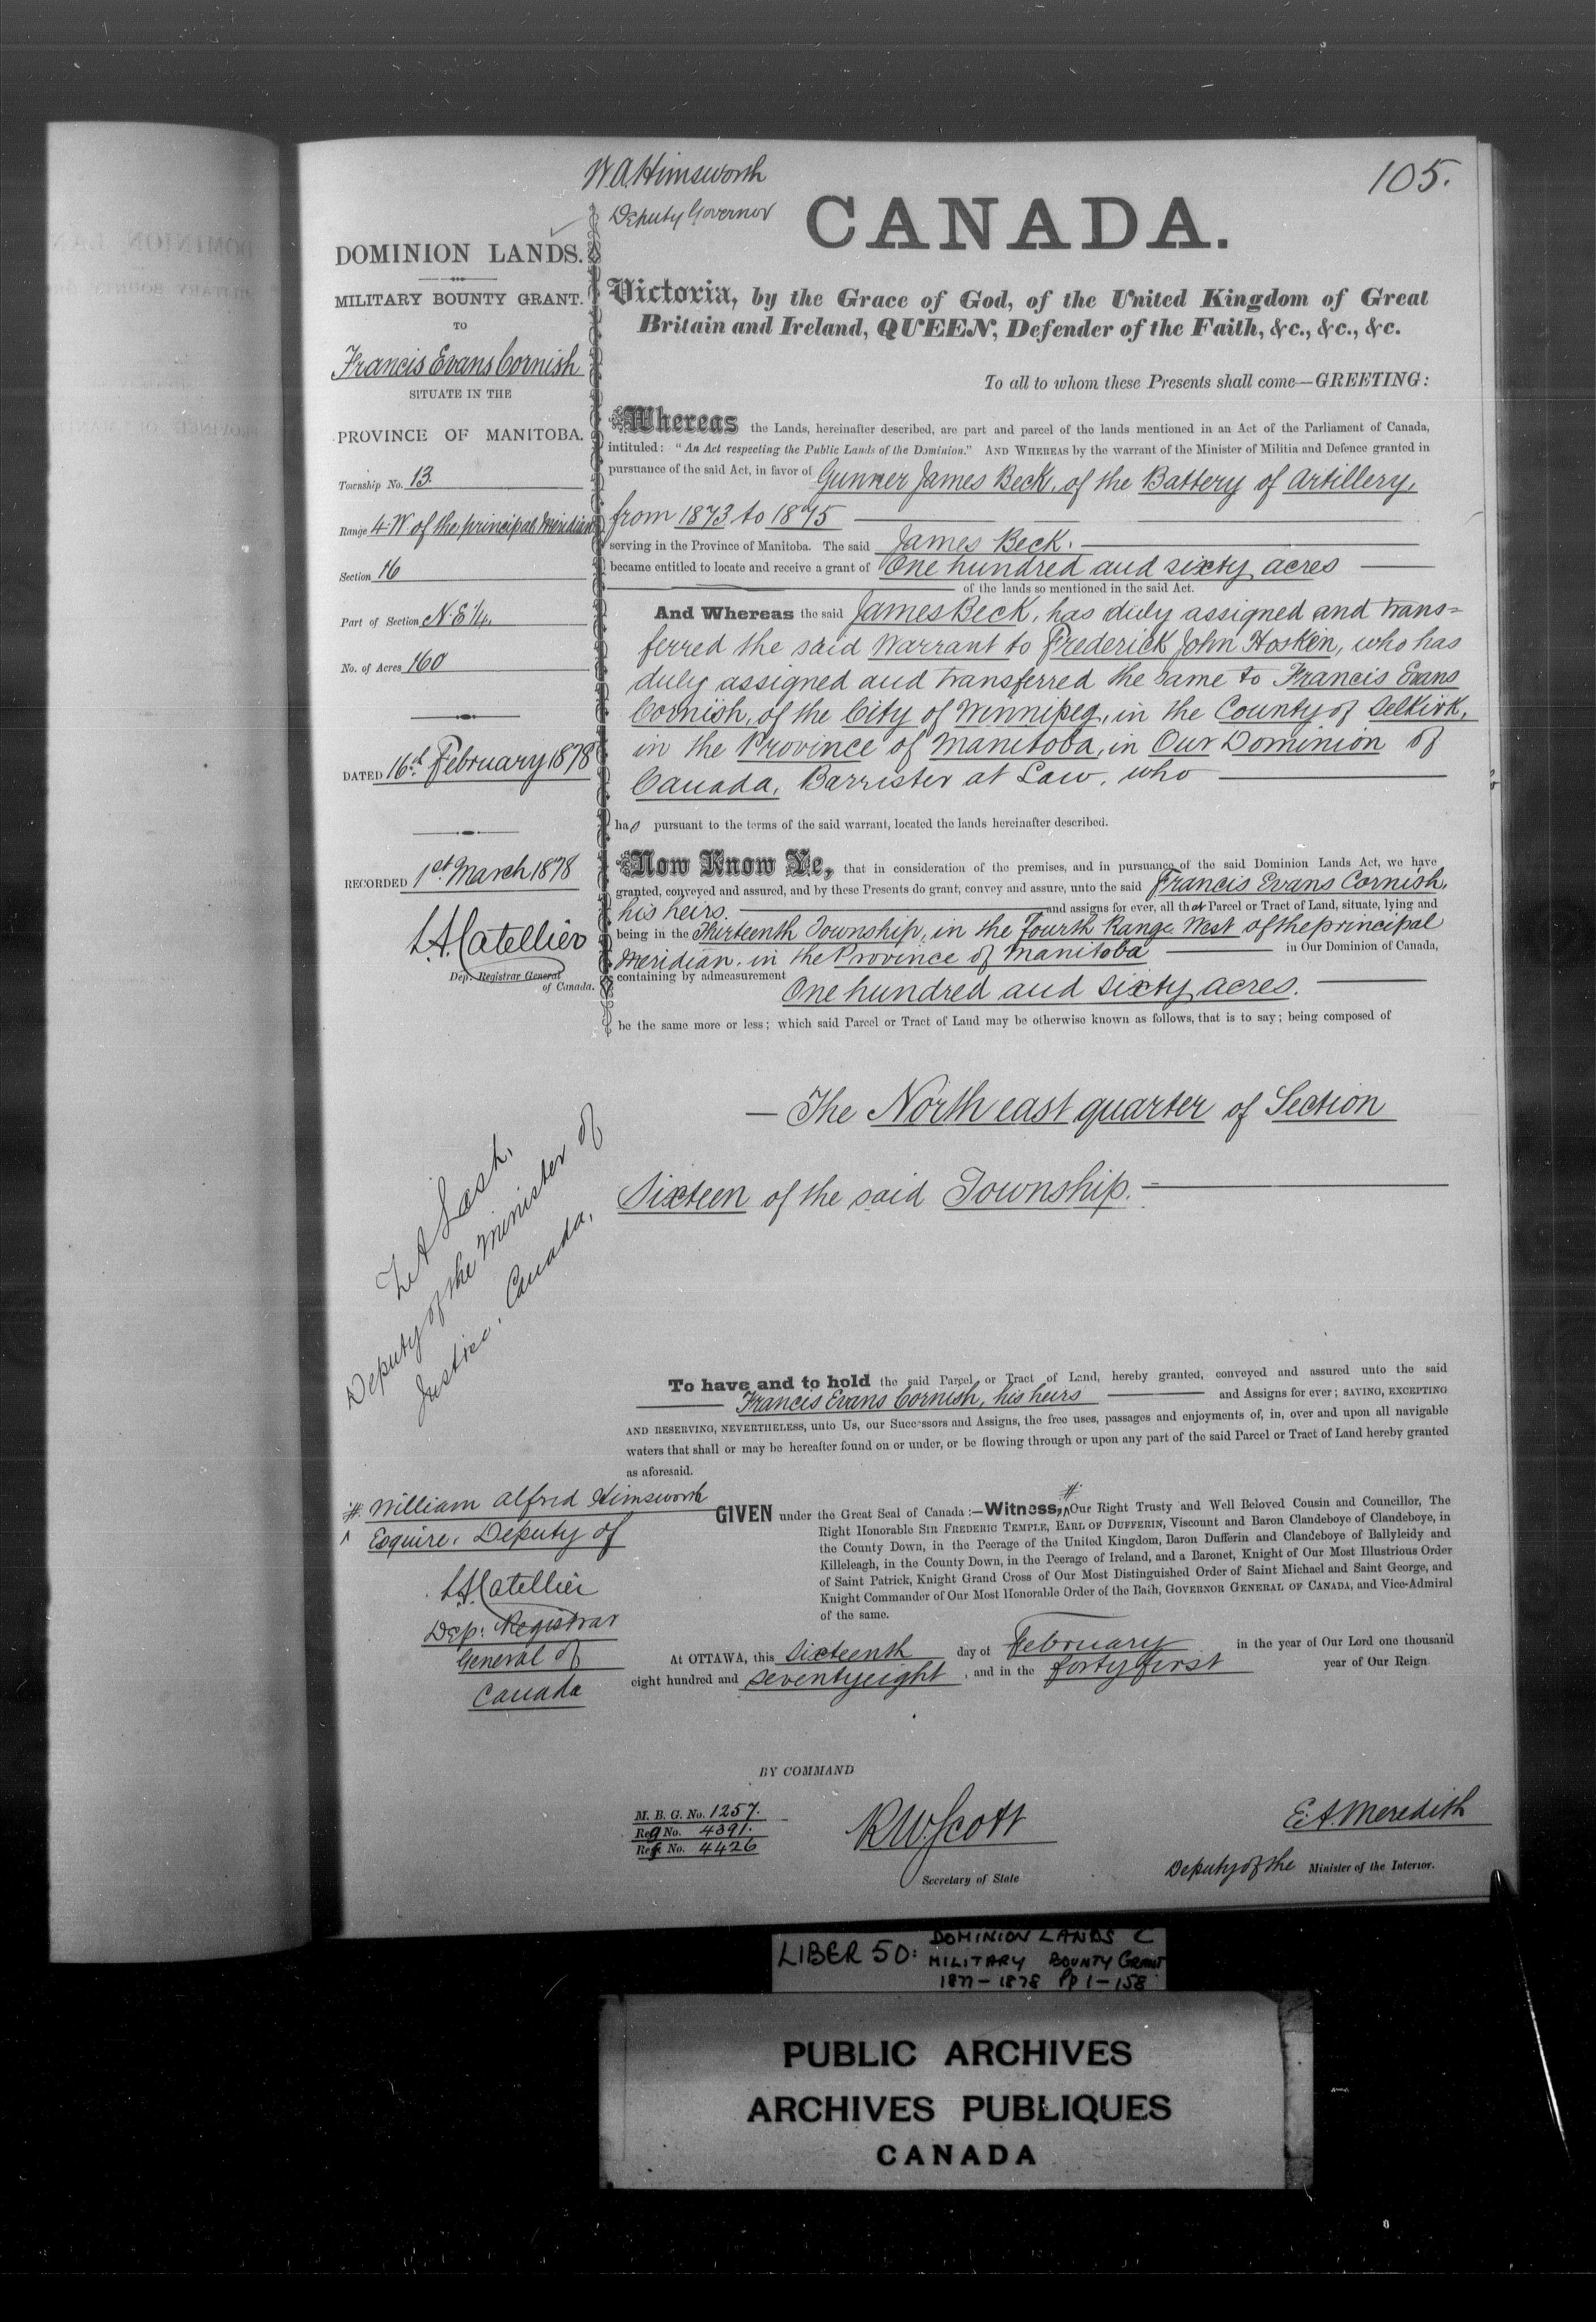 105.
W A Himsworth
Deputy Governor
CANADA.
DOMINION LANDS.
MILITARY BOUNTY GRANT.
TO
Francis Evans Cornish
SITUATE IN THE
PROVINCE OF MANITOBA.
Township No. 13.
Range 4 W of the principal Meridian
Section 16
Part of Section N.E 1/4.
No. of Acres 160
DATED 16th February 1878
RECORDED 1st March 1878
L.A. Catellier
Dep. Registrar General
of Canada.
Victoria, by the Grace of God, of the United Kingdom of Great
Britain and Ireland, QUEEN, Defender of the Faith, &c., &c., &c.
To all to whom these Presents shall come—GREETING:
Whereas the Lands, hereinafter described, are part and parcel of the lands mentioned in an Act of the Parliament of Canada,
intituled: "An Act respecting the Public Lands of the Dominion." AND WHEREAS by the warrant of the Minister of Militia and Defence granted in
pursuance of the said Act, in favor of Gunner James Beck, of the Battery of Artillery,
from 1873 to 1875
serving in the Province of Manitoba. The said James Beck.
became entitled to locate and receive a grant of One hundred and sixty acres
of the lands so mentioned in the said Act.
And Whereas the said James Beck, has duly assigned and trans=
ferred the said Warrant to Frederick John Hosken, who has
duly assigned and transferred the same to Francis Evans
Cornish, of the City of Winnipeg, in the County of Selkirk,
in the Province of Manitoba, in Our Dominion of
Canada, Barrister at Law, who
has pursuant to the terms of the said warrant, located the lands hereinafter described.
Now Know Ye, that in consideration of the premises, and in pursuance of the said Dominion Lands Act, we have
granted, conveyed and assured, and by these Presents do grant, convey and assure, unto the said Francis Evans Cornish,
his heirs. and assigns for ever, all that Parcel or Tract of Land, situate, lying and
being in the Thirteenth Township, in the Fourth Range West of the principal
Meridian, in the Province of Manitoba in Our Dominion of Canada,
containing by admeasurement One hundred and sixty acres.
be the same more or less; which said Parcel or Tract of Land may be otherwise known as follows, that is to say; being composed of
— The North east quarter of Section
Sixteen of the said Township.
Z A Lash,
Deputy of the Minister of
Justice, Canada,
To have and to hold the said Parcel or Tract of Land, hereby granted, conveyed and assured unto the said
Francis Evans Cornish, his heirs and Assigns for ever; SAVING, EXCEPTING
AND RESERVING, NEVERTHELESS, unto Us, our Successors and Assigns, the free uses, passages and enjoyments of, in, over and upon all navigable
waters that shall or may be hereafter found on or under, or be flowing through or upon any part of the said Parcel or Tract of Land hereby granted
as aforesaid.
# William Alfred Himsworth
Esquire, Deputy of
L.A. Catellier
Dep: Registrar
General of
Canada
GIVEN under the Great Seal of Canada:—Witness, # Our Right Trusty and Well Beloved Cousin and Councillor, The
Right Honorable SIR FREDERIC TEMPLE, EARL OF DUFFERIN, Viscount and Baron Clandeboye of Clandeboye, in
the County Down, in the Peerage of the United Kingdom, Baron Dufferin and Clandeboye of Ballyleidy and
Killeleagh, in the County Down, in the Peerage of Ireland, and a Baronet, Knight of Our Most Illustrious Order
of Saint Patrick, Knight Grand Cross of Our Most Distinguished Order of Saint Michael and Saint George, and
Knight Commander of Our Most Honorable Order of the Bath, GOVERNOR GENERAL OF CANADA, and Vice-Admiral
of the same.
At OTTAWA, this Sixteenth day of February in the year of Our Lord one thousand
eight hundred and seventy eight, and in the forty first year of Our Reign
BY COMMAND
M. B. G. No. 1257.
Reg No. 4391.
Ref. No. 4426
R W Scott
Secretary of State
E. A. Meredith
Deputy of the Minister of the Interior.
LIBER 50: DOMINION LANDS C
MILITARY BOUNTY GRANT
1877–1878 Pp 1–158
PUBLIC ARCHIVES
ARCHIVES PUBLIQUES
CANADA